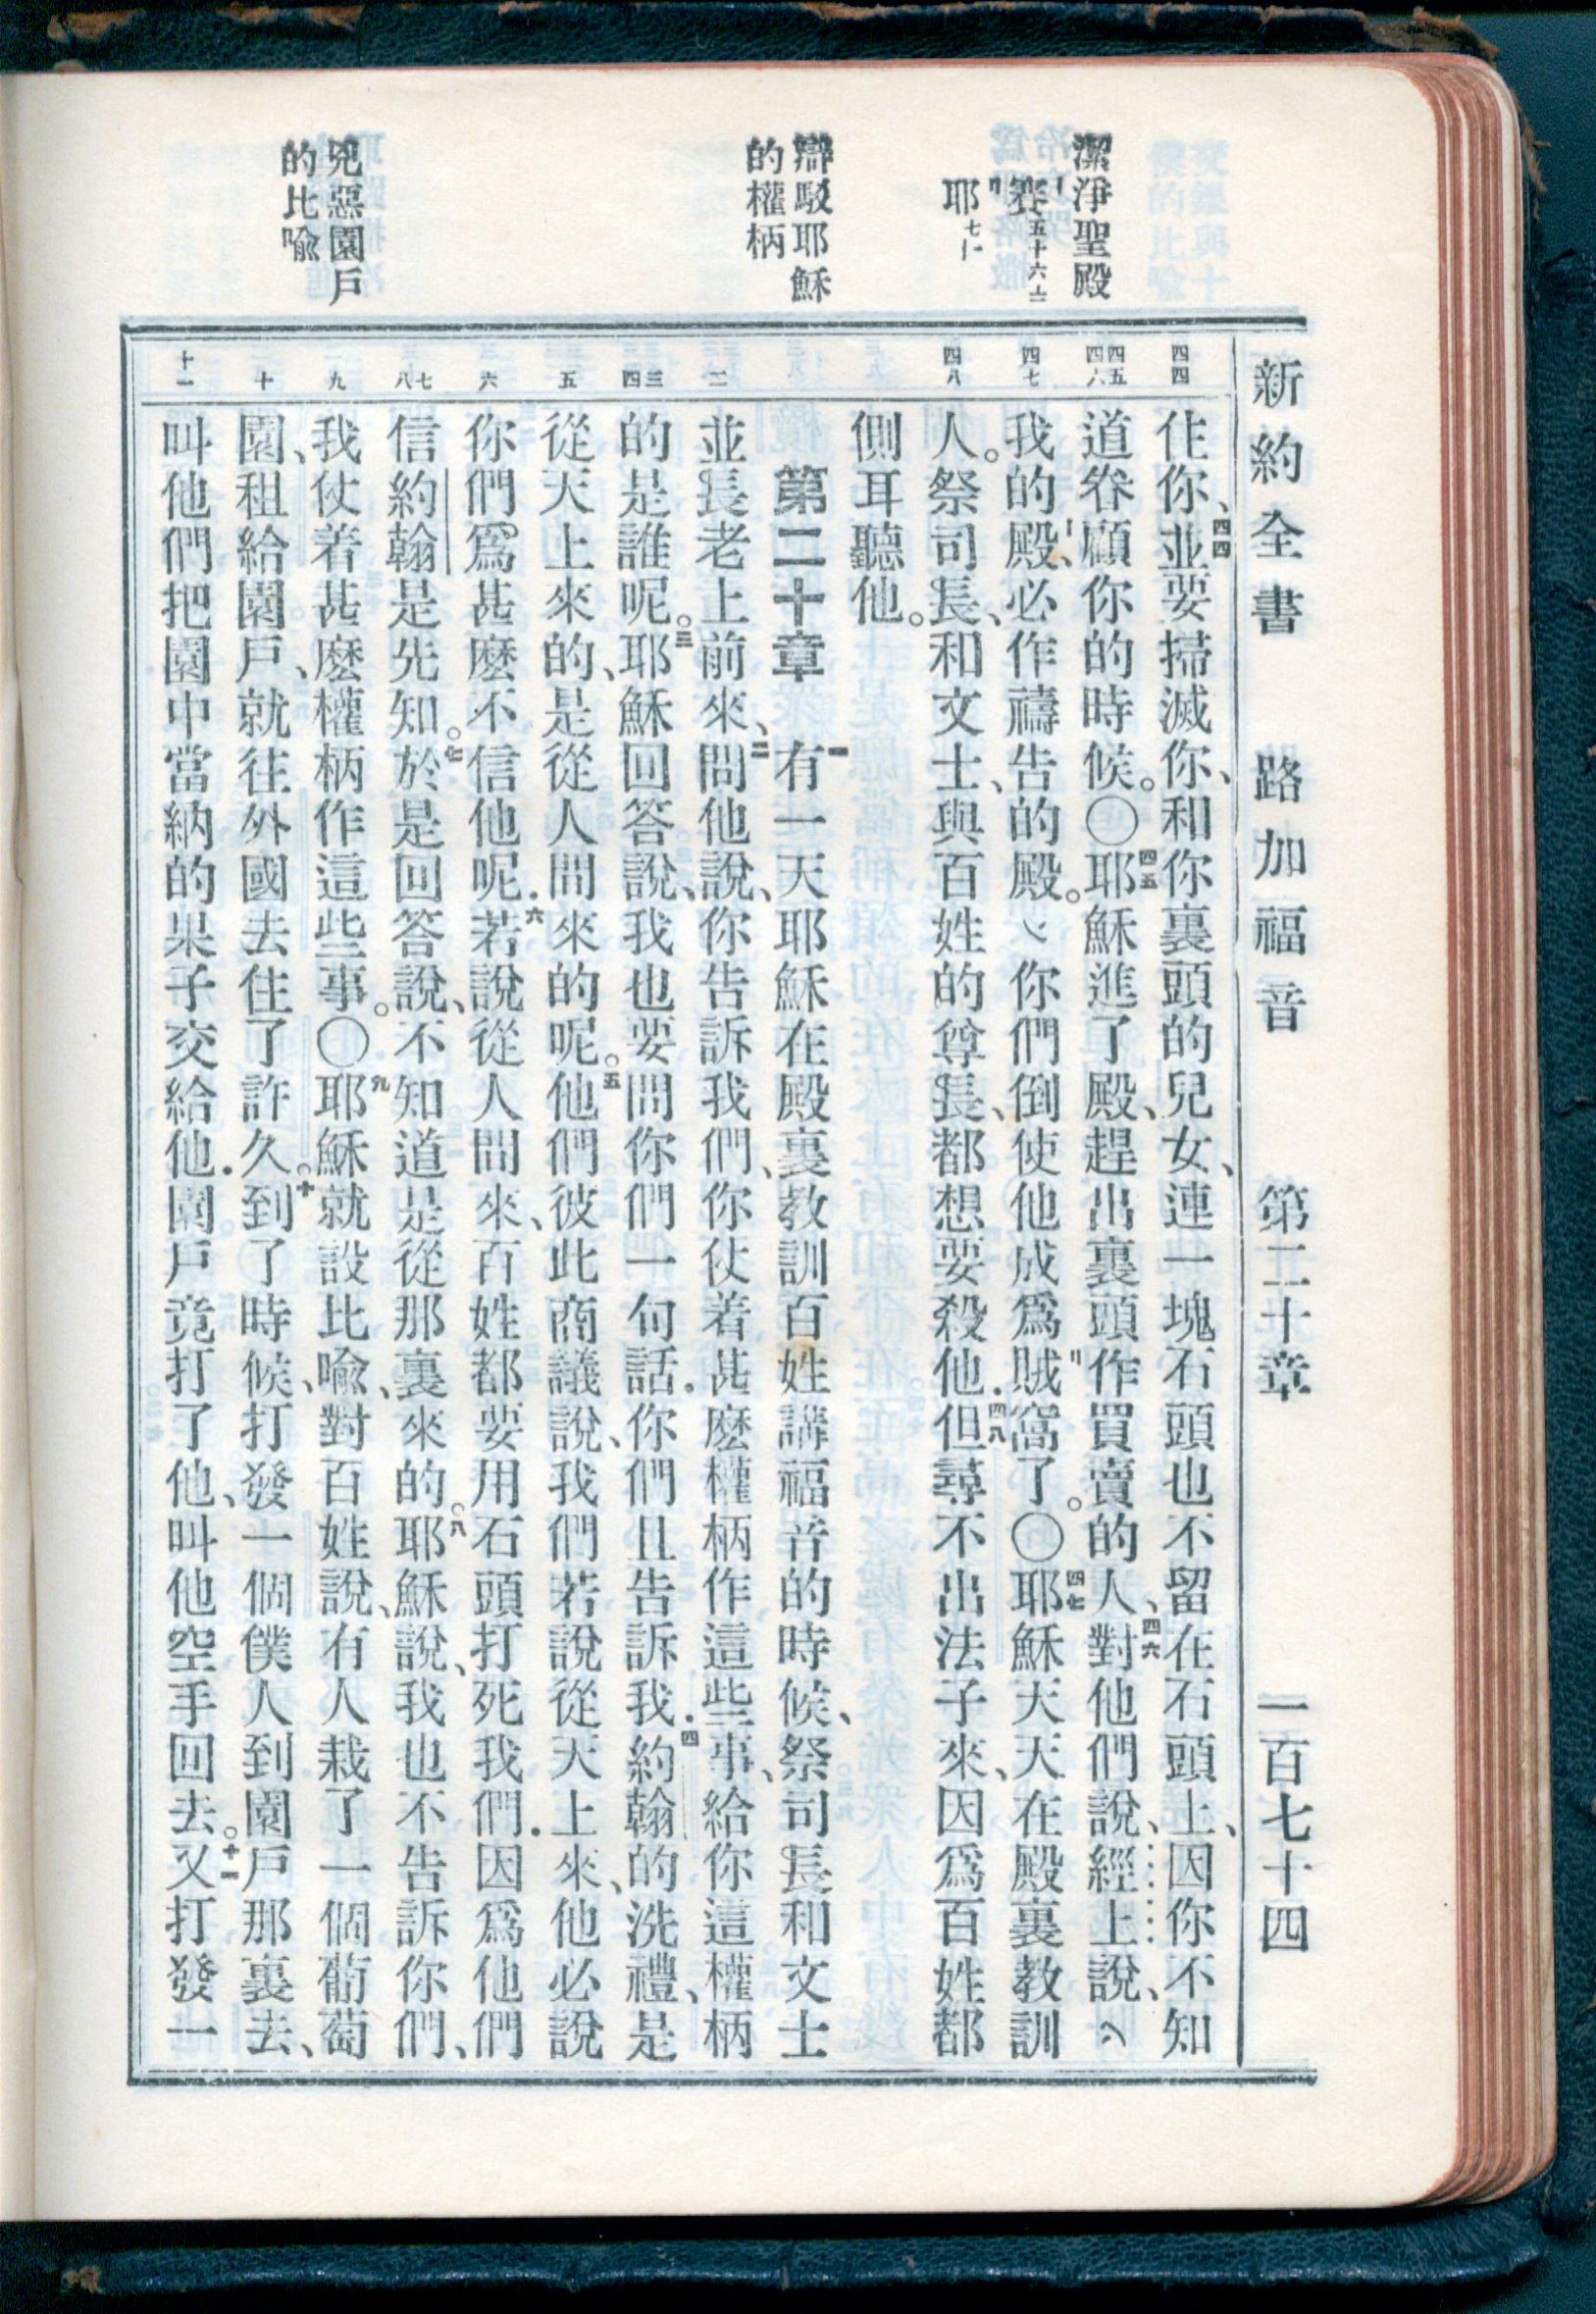 新約全書 路加福音 第二十章 一百七十四
潔淨聖殿
賽五十六
耶七十一
辯駁耶穌
的權柄
兇惡園戶
的比喩
四四
四五
四六
四七
四八
二
三
四
五
六
七
八
九
十
十一
住你、四四並要掃滅你、和你裏頭的兒女、連一塊石頭也不留在石頭上、因你不知
道眷顧你的時候。〇四五耶穌進了殿、趕出裏頭作買賣的人、四六對他們說、經上說、
我的殿、必作禱告的殿。你們倒使他成爲賊窩了。〇四七耶穌天天在殿裏教訓
人。祭司長、和文士、與百姓的尊長、都想要殺他．四八但尋不出法子來、因爲百姓都
側耳聽他。
第二十章 一有一天耶穌在殿裏教訓百姓講福音的時候、祭司長和文士
並長老上前來、二問他說、你告訴我們、你仗着甚麽權柄作這些事、給你這權柄
的是誰呢。三耶穌回答說、我也要問你們一句話．你們且告訴我．四約翰的洗禮、是
從天上來的、是從人間來的呢。五他們彼此商議說、我們若說從天上來、他必說
你們爲甚麽不信他呢．六若說從人間來、百姓都要用石頭打死我們．因爲他們
信約翰是先知。七於是回答說、不知道是從那裏來的。八耶穌說、我也不告訴你們、
我仗着甚麽權柄作這些事。〇九耶穌就設比喩、對百姓說、有人栽了一個葡萄
園、租給園戶、就往外國去住了許久。十到了時候、打發一個僕人到園戶那裏去、
叫他們把園中當納的果子交給他．園戶竟打了他、叫他空手回去。十一又打發一